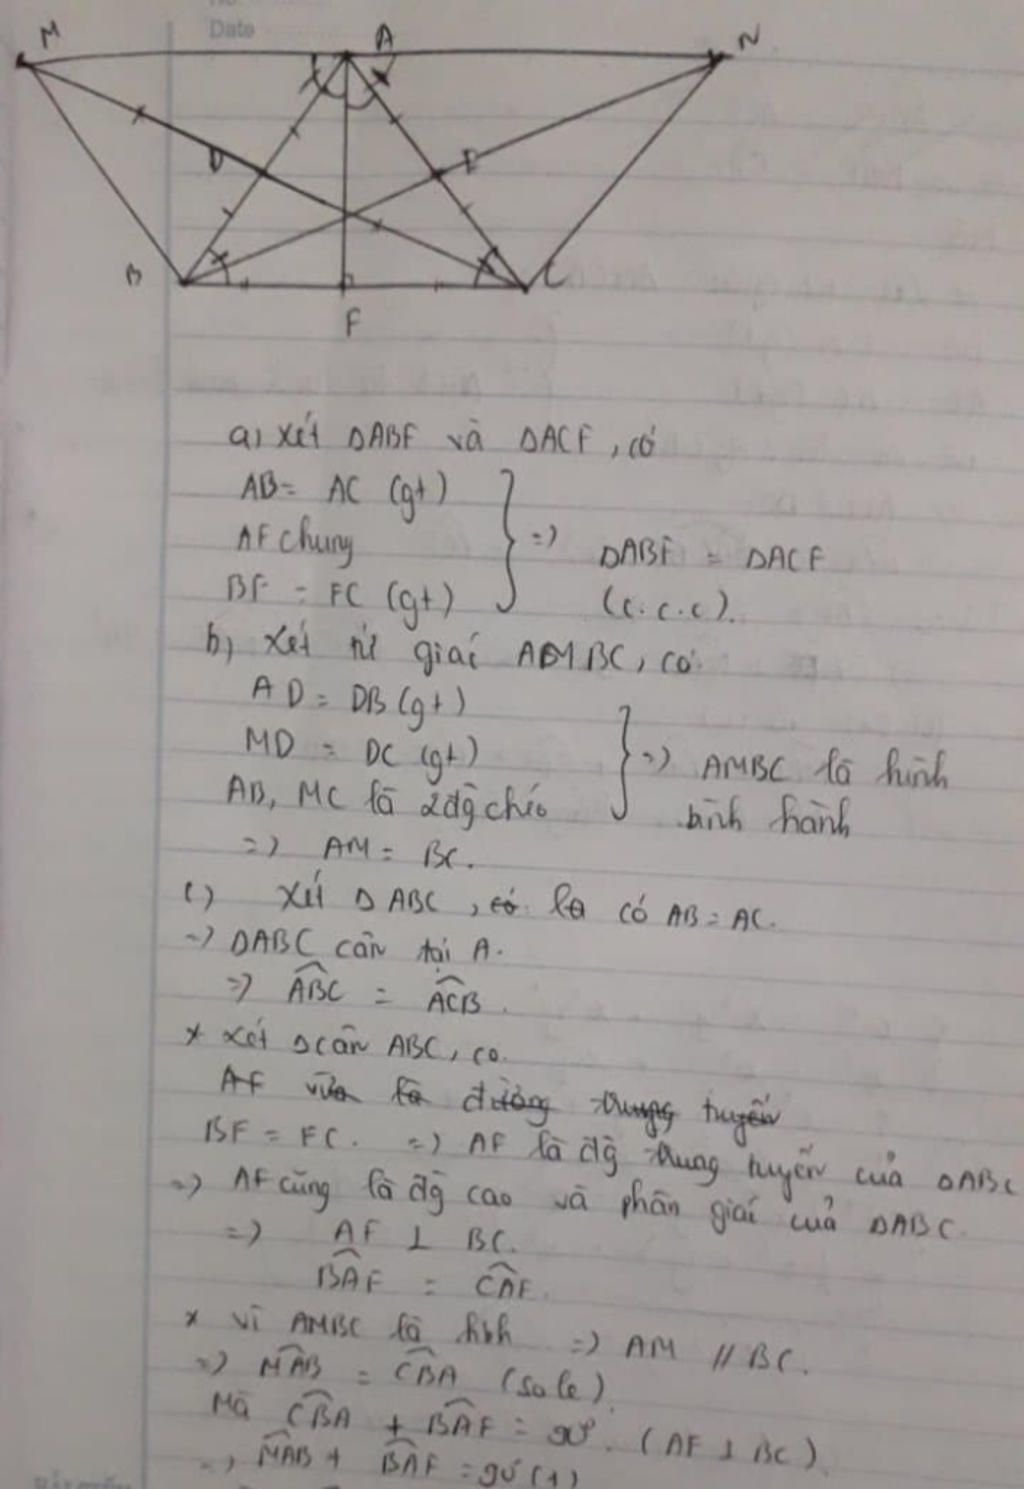 Date
M A N
D E
B C
F
a) Xét ΔABF và ΔACF, có
AB = AC (gt)
AF chung
BF = FC (gt)
=> ΔABF = ΔACF
(c.c.c).
b) Xét tứ giác AMBC, có
AD = DB (gt)
MD = DC (gt)
AB, MC là 2 đg chéo
=> AMBC là hình
bình hành
=> AM = BC.
c) Xét ΔABC, có là có AB = AC.
=> ΔABC cân tại A.
=> \widehat{ABC} = \widehat{ACB}.
* Xét Δ cân ABC, có.
AF vừa là đường trung tuyến
BF = FC. => AF là đg trung tuyến của ΔABC
=> AF cũng là đg cao và phân giác của ΔABC.
=> AF ⊥ BC.
\widehat{BAF} = \widehat{CAF}.
* vì AMBC là hbh => AM // BC.
=> \widehat{MAB} = \widehat{CBA} (so le).
Mà \widehat{CBA} + \widehat{BAF} = 90°. (AF ⊥ BC)
=> \widehat{MAB} + \widehat{BAF} = 90° (1)